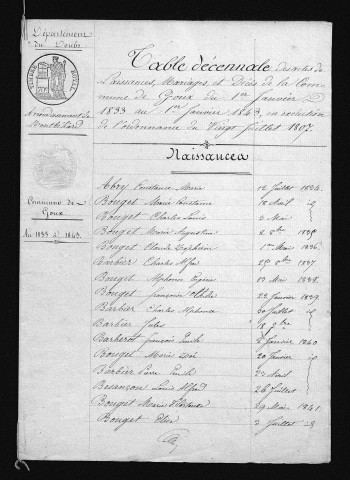 Département
du Doubs
TIMBRE ROYAL
Arrondissement de
Montbéliard
Commune de
Goux
An 1833 à 1843.
Table décennale des actes de
Naissances, Mariages, et Décès de la Com-
mune de Goux du 1er Janvier
1833 au 1er Janvier 1843, en exécution
de l'ordonnance du Vingt Juillet 1807.
Naissances
Abry Constance Marie 12 Juillet 1834.
Bouget Marie Constance 18 Avril id
Bouget Charles Louis 2 Mai
Bouget Marie Augustine 2 8bre 1835
Bouget Claude Zéphirin 1er Mai 1836.
Barbier Charles 29 8bre 1837.
Bouget Alphonse 13 Mai 1838.
Bouget françoise 22 Janvier 1839.
Barbier Charles Alphonse 30 Juillet id
Barbier Jules 18 9bre
Barberot françois Emile 2 Janvier 1840.
Bouget Marie Zoé 20 Janvier id
Barbier Pierre Emile 22 Avril
Besançon Louis Alfred 26 Juillet
Bouget Marie Hortense 29 Mai 1841.
Bouget Elise 2 Juillet id